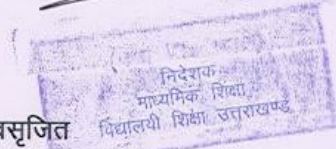 निदेशक
माध्यमिक शिक्षा
विद्यालयी शिक्षा उत्तराखण्ड